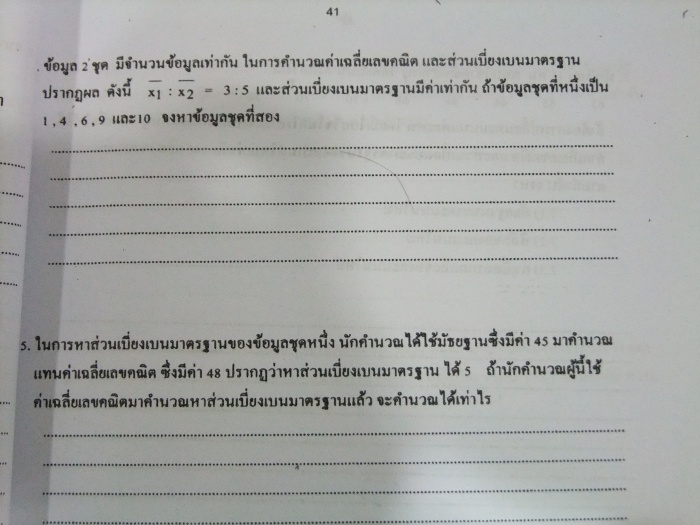 41
. ข้อมูล 2 ชุด มีจำนวนข้อมูลเท่ากัน ในการคำนวณค่าเฉลี่ยเลขคณิต และส่วนเบี่ยงเบนมาตรฐาน
ปรากฏผล ดังนี้ x̅1 : x̅2 = 3 : 5 และส่วนเบี่ยงเบนมาตรฐานมีค่าเท่ากัน ถ้าข้อมูลชุดที่หนึ่งเป็น
1 , 4 , 6 , 9 และ10 จงหาข้อมูลชุดที่สอง
5. ในการหาส่วนเบี่ยงเบนมาตรฐานของข้อมูลชุดหนึ่ง นักคำนวณได้ใช้มัธยฐานซึ่งมีค่า 45 มาคำนวณ
แทนค่าเฉลี่ยเลขคณิต ซึ่งมีค่า 48 ปรากฏว่าหาส่วนเบี่ยงเบนมาตรฐาน ได้ 5 ถ้านักคำนวณผู้นี้ใช้
ค่าเฉลี่ยเลขคณิตมาคำนวณหาส่วนเบี่ยงเบนมาตรฐานแล้ว จะคำนวณได้เท่าไร